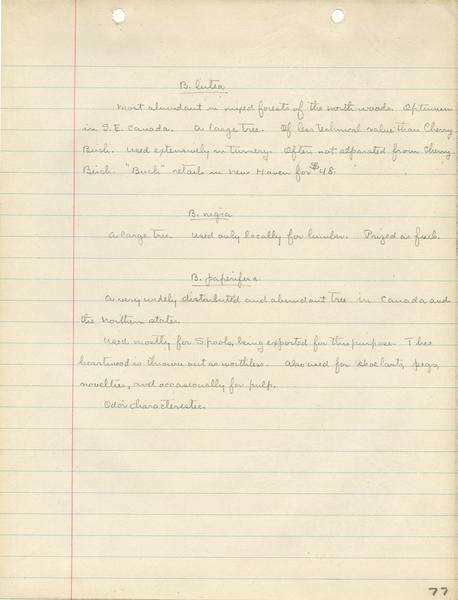 B. lutea
Most abundant in mixed forests of the north woods. Optimum
in S.E. Canada. A large tree. Of less technical value than Cherry
Birch. Used extensively in turnery. Often not separated from Cherry
Birch. "Birch" retails in New Haven for $48.
B. nigra
A large tree. Used only locally for lumber. Prized as fuel.
B. papyrifera
A very widely distributed and abundant tree in Canada and
the northern states.
Used mostly for Spools, being exported for this purpose. The
heartwood is thrown out as worthless. Also used for shoe lasts, pegs,
novelties, and occasionally for pulp.
Odor characteristic.
77